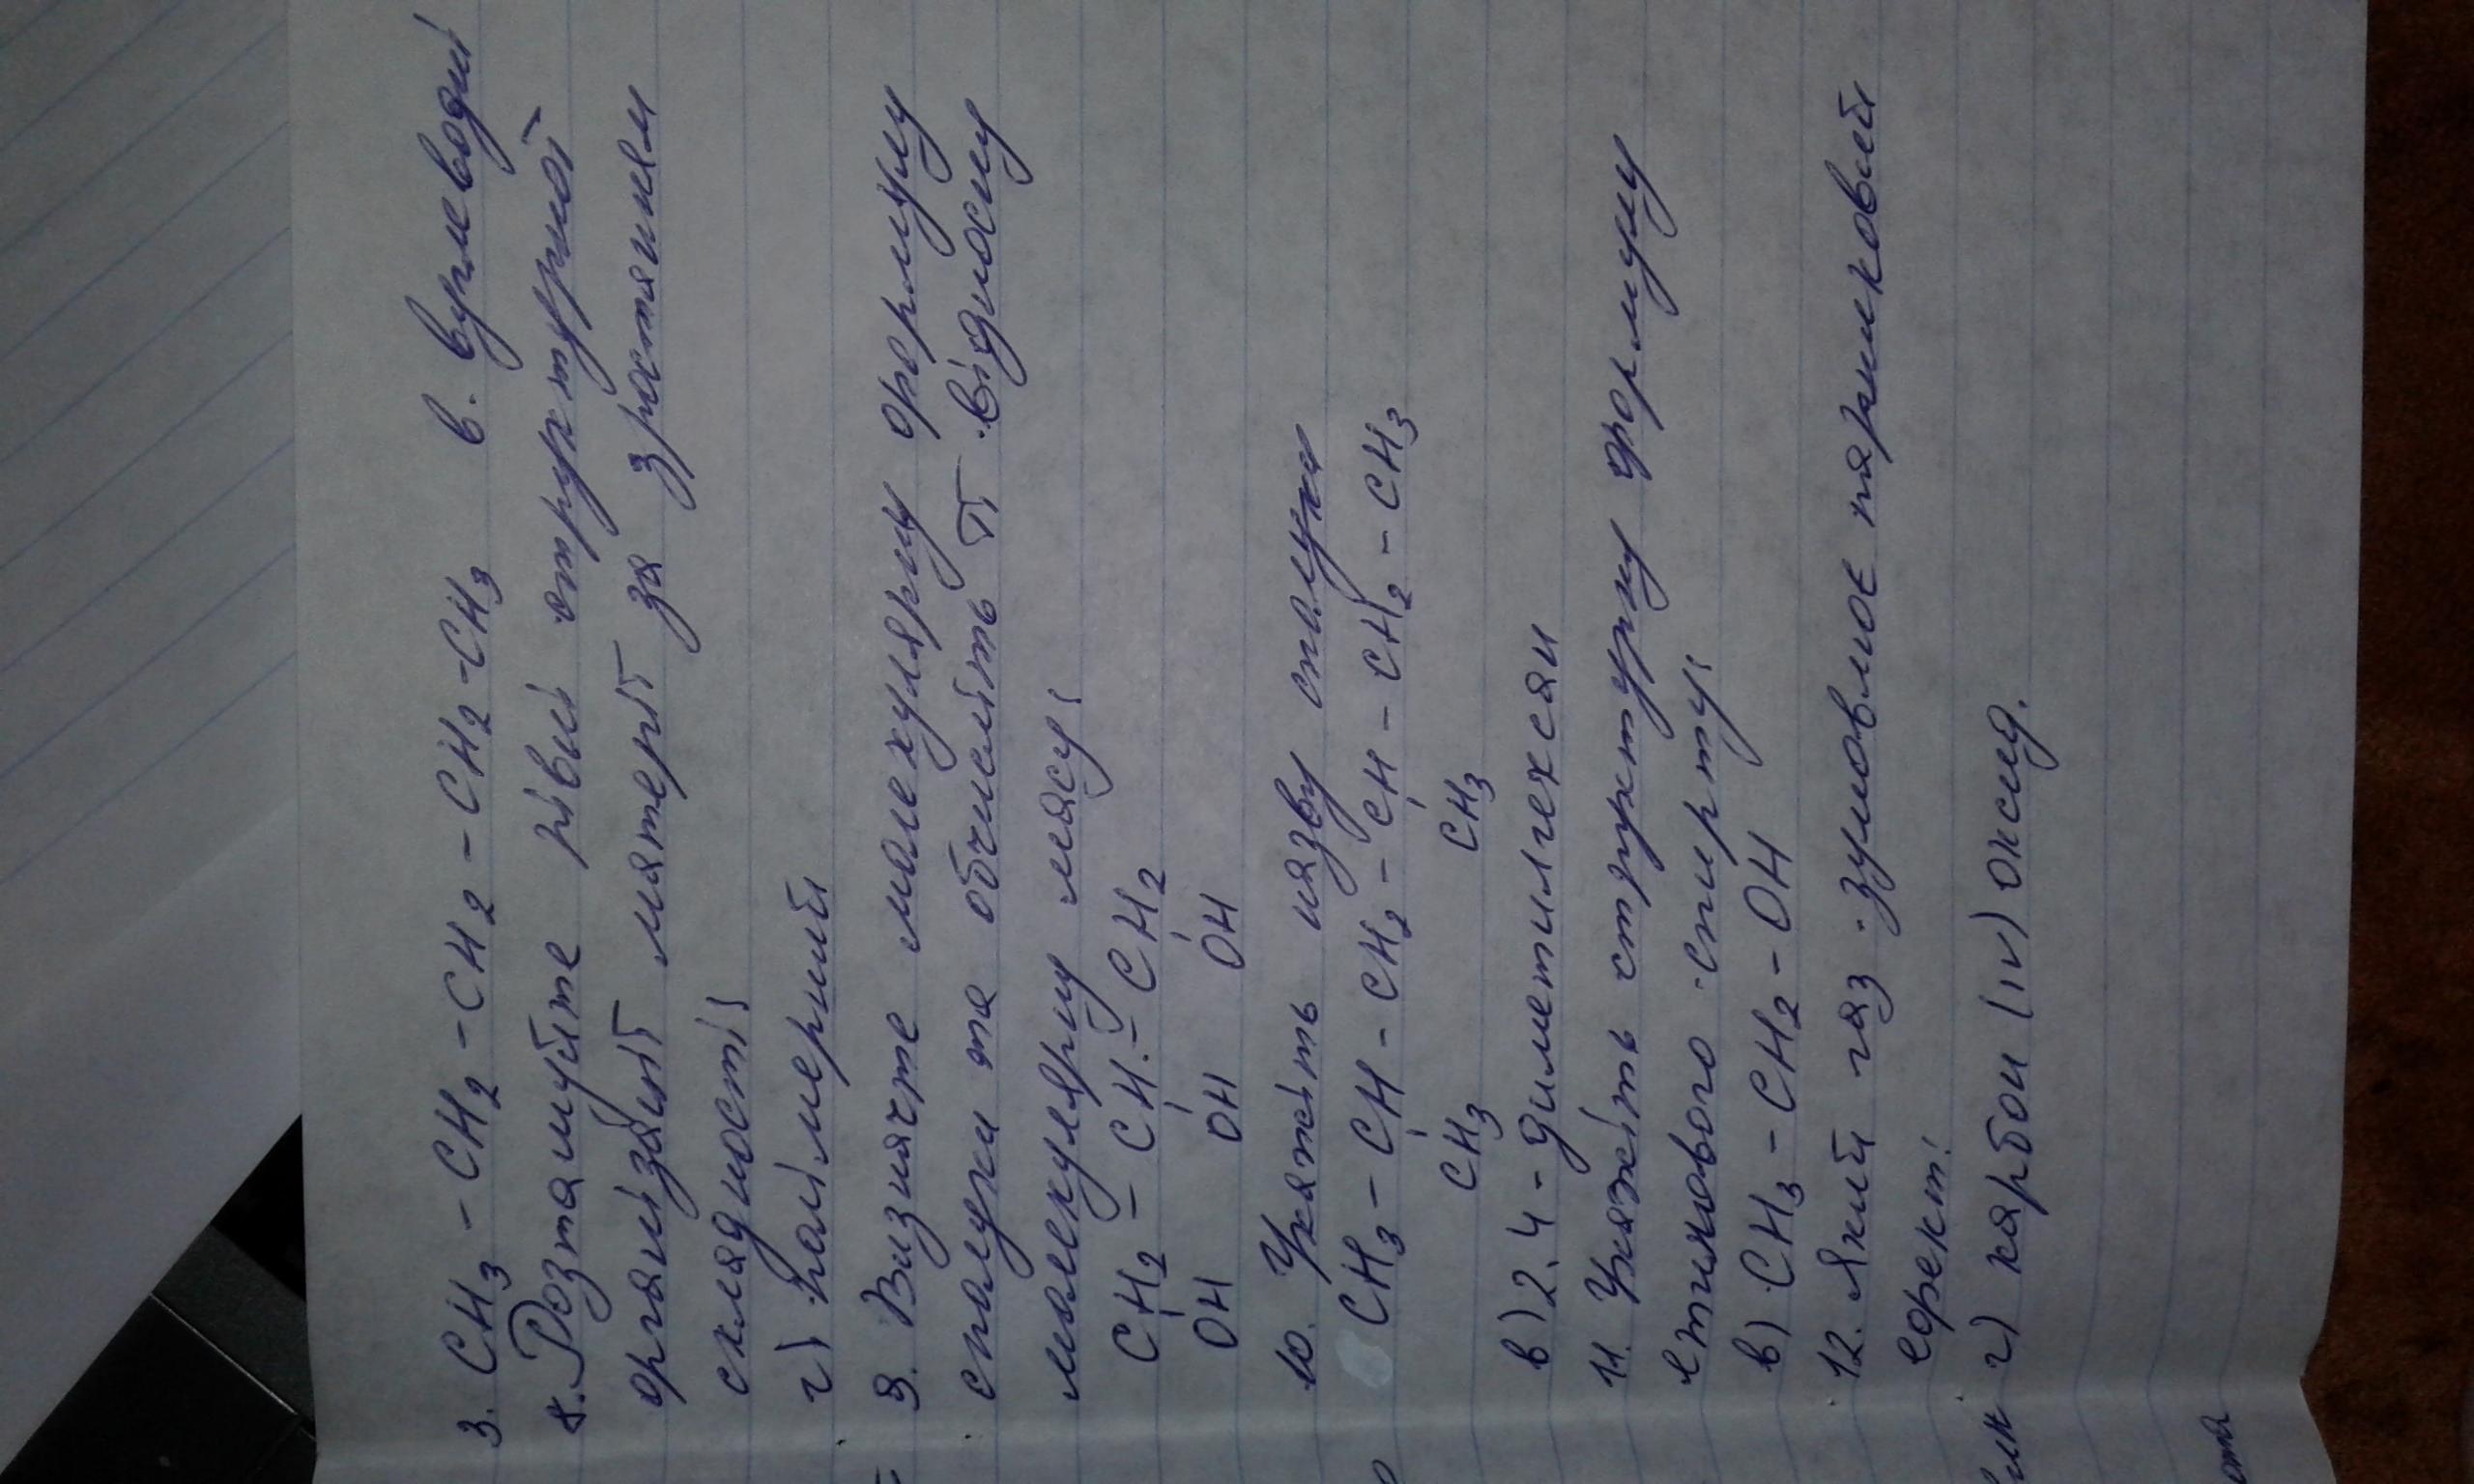 3. CH3 - CH2 - CH2 - CH2 - CH3 в. вуглеводні
8. Розташуйте рівні структурної
організації матерії за зростанням
складності:
г) полімерний
9. Визначте молекулярну формулу
сполуки та обчисліть її відносну
молекулярну масу:
CH2 - CH - CH2
OH OH OH
10. Укажіть назву сполуки
CH3 - CH - CH2 - CH - CH2 - CH3
CH3 CH3
в) 2.4 - диметилгексан
11. Укажіть структурну формулу
етилового спирту:
в) CH3 - CH2 - OH
12. Який газ зумовлює парниковий
ефект:
г) карбон (IV) оксид.